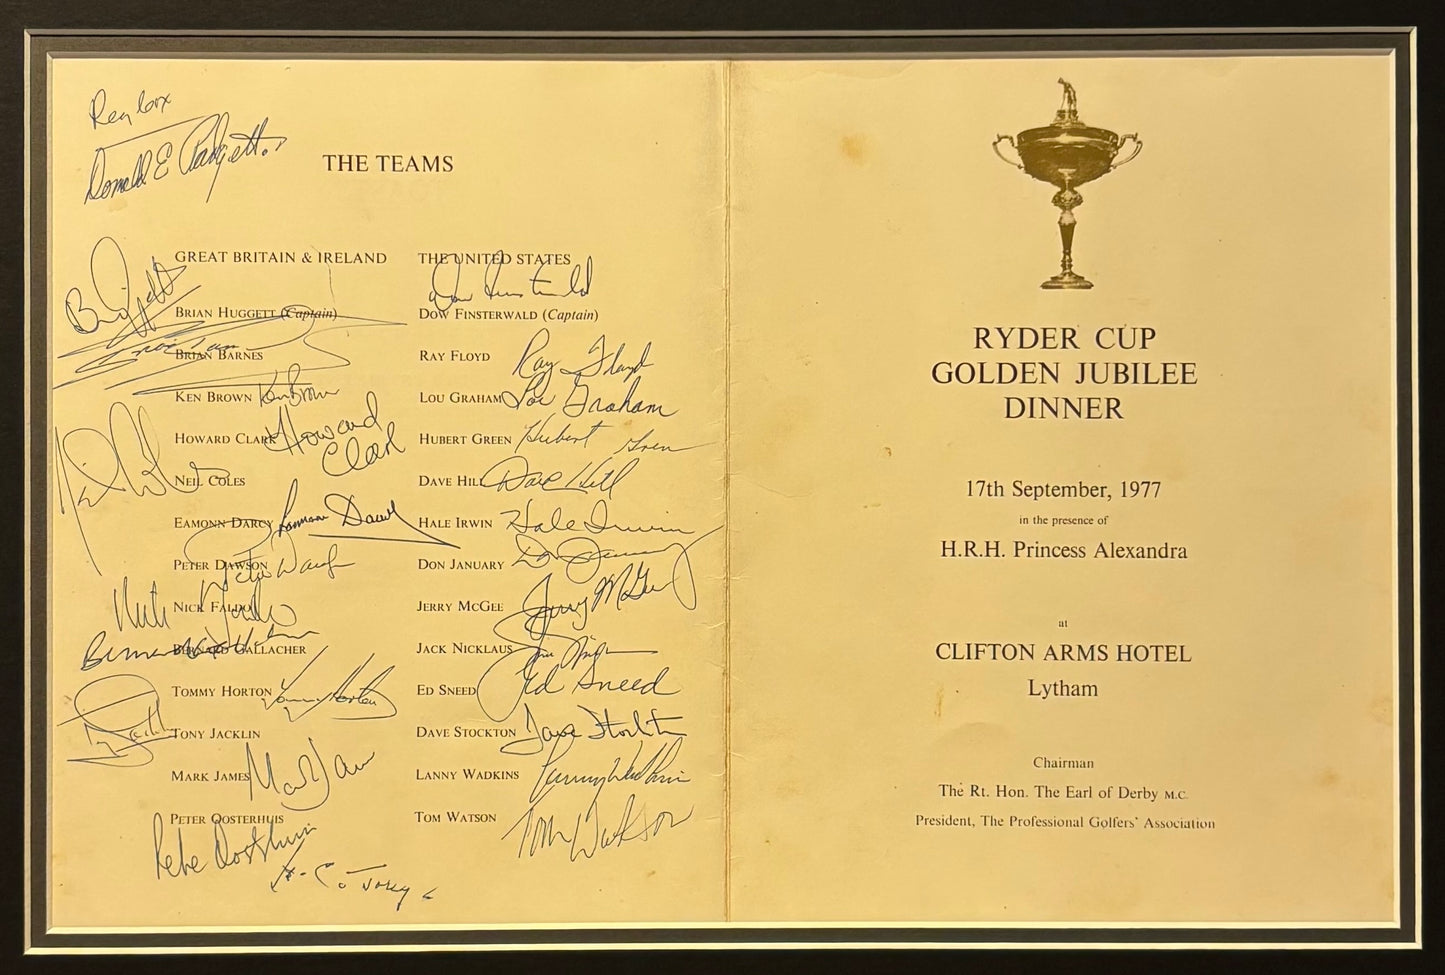 Reg Cox
Donald E Padgett
THE TEAMS
GREAT BRITAIN & IRELAND
BRIAN HUGGETT (Captain)
BRIAN BARNES
KEN BROWN Ken Brown
HOWARD CLARK Howard Clark
NEIL COLES
EAMONN DARCY Eamonn Darcy
PETER DAWSON Peter Dawson
NICK FALDO Nick Faldo
BERNARD GALLACHER
TOMMY HORTON Tommy Horton
TONY JACKLIN
MARK JAMES Mark James
PETER OOSTERHUIS
Pete Oosterhuis
THE UNITED STATES
Dow Finsterwald
DOW FINSTERWALD (Captain)
RAY FLOYD Ray Floyd
LOU GRAHAM Lou Graham
HUBERT GREEN Hubert Green
DAVE HILL Dave Hill
HALE IRWIN Hale Irwin
DON JANUARY Don January
JERRY MCGEE Jerry McGee
JACK NICKLAUS
ED SNEED Ed Sneed
DAVE STOCKTON Dave Stockton
LANNY WADKINS Lanny Wadkins
TOM WATSON Tom Watson
RYDER CUP
GOLDEN JUBILEE
DINNER
17th September, 1977
in the presence of
H.R.H. Princess Alexandra
at
CLIFTON ARMS HOTEL
Lytham
Chairman
The Rt. Hon. The Earl of Derby M.C.
President, The Professional Golfers' Association